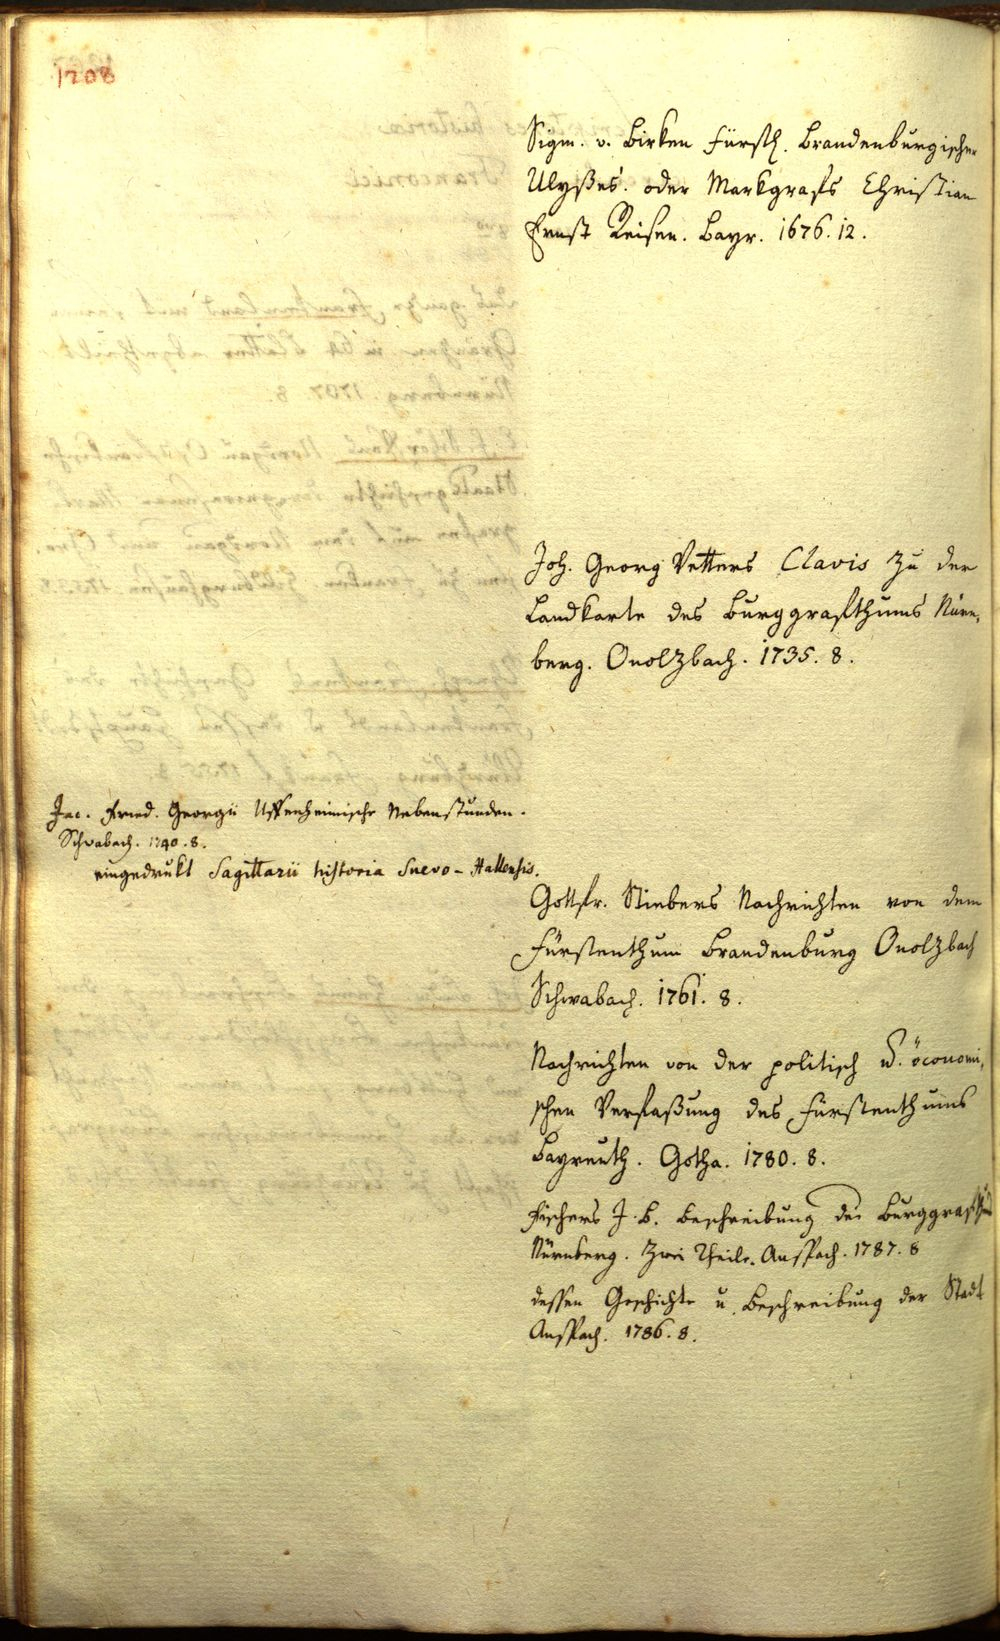 1708
Sigm. v. Birken Fürstl. Brandenburgischer
Ulyßes. oder Markgrafs Christian
Ernst Reisen. Bayr. 1676. 12.
Joh. Georg Vetters Clavis zu der
Landkarte des Burggrafthums Nürn,
berg. Onolzbach. 1735. 8.
Jac. Fried. Georgii Uffenheimische Nebenstunden.
Schwabach. 1740. 8.
eingedrukt Sagittarii historia Suevo-Hallensis.
Gottfr. Stiebers Nachrichten von dem
Fürstenthum Brandenburg Onolzbach
Schwabach. 1761. 8.
Nachrichten von der politisch u. öconomi,
schen Verfaßung des Fürstenthums
Bayreuth. Gotha. 1780. 8.
Fischers J. B. Beschreibung des Burggrafthums
Nürnberg. Zwei Theile. Anspach. 1787. 8
dessen Geschichte u. Beschreibung der Stadt
Anspach. 1786. 8.